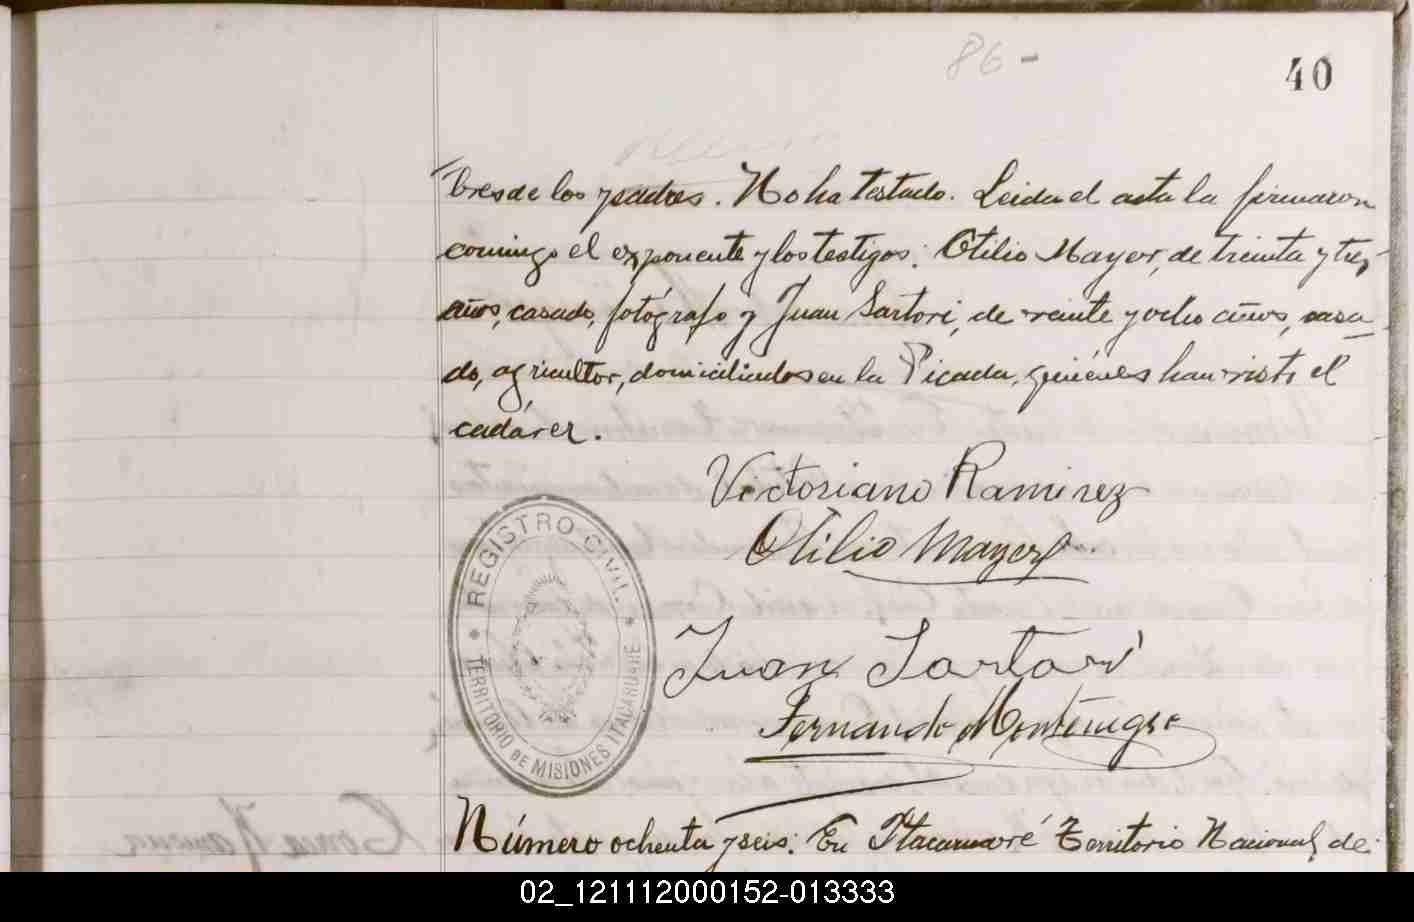 86 -
40
bres de los padres. No ha testado. Leida el acta la firmaron
conmigo el exponente y los testigos: Otilio Mayer, de treinta y tres
años, casado, fotógrafo y Juan Sartori, de veinte y ocho años, casa-
do, agricultor, domiciliados en la Picada, quiénes han visto el
cadáver.
Victoriano Ramirez
Otilio Mayer
REGISTRO CIVIL
TERRITORIO DE MISIONES ITACARUARE
Juan Sartori
Fernando Montenegro
Número ochenta y seis: En Itacaruaré Territorio Nacional de
02_121112000152-013333